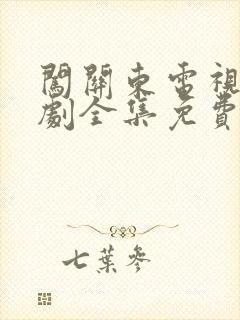 闖關東電視
劇全集免費
七葉參